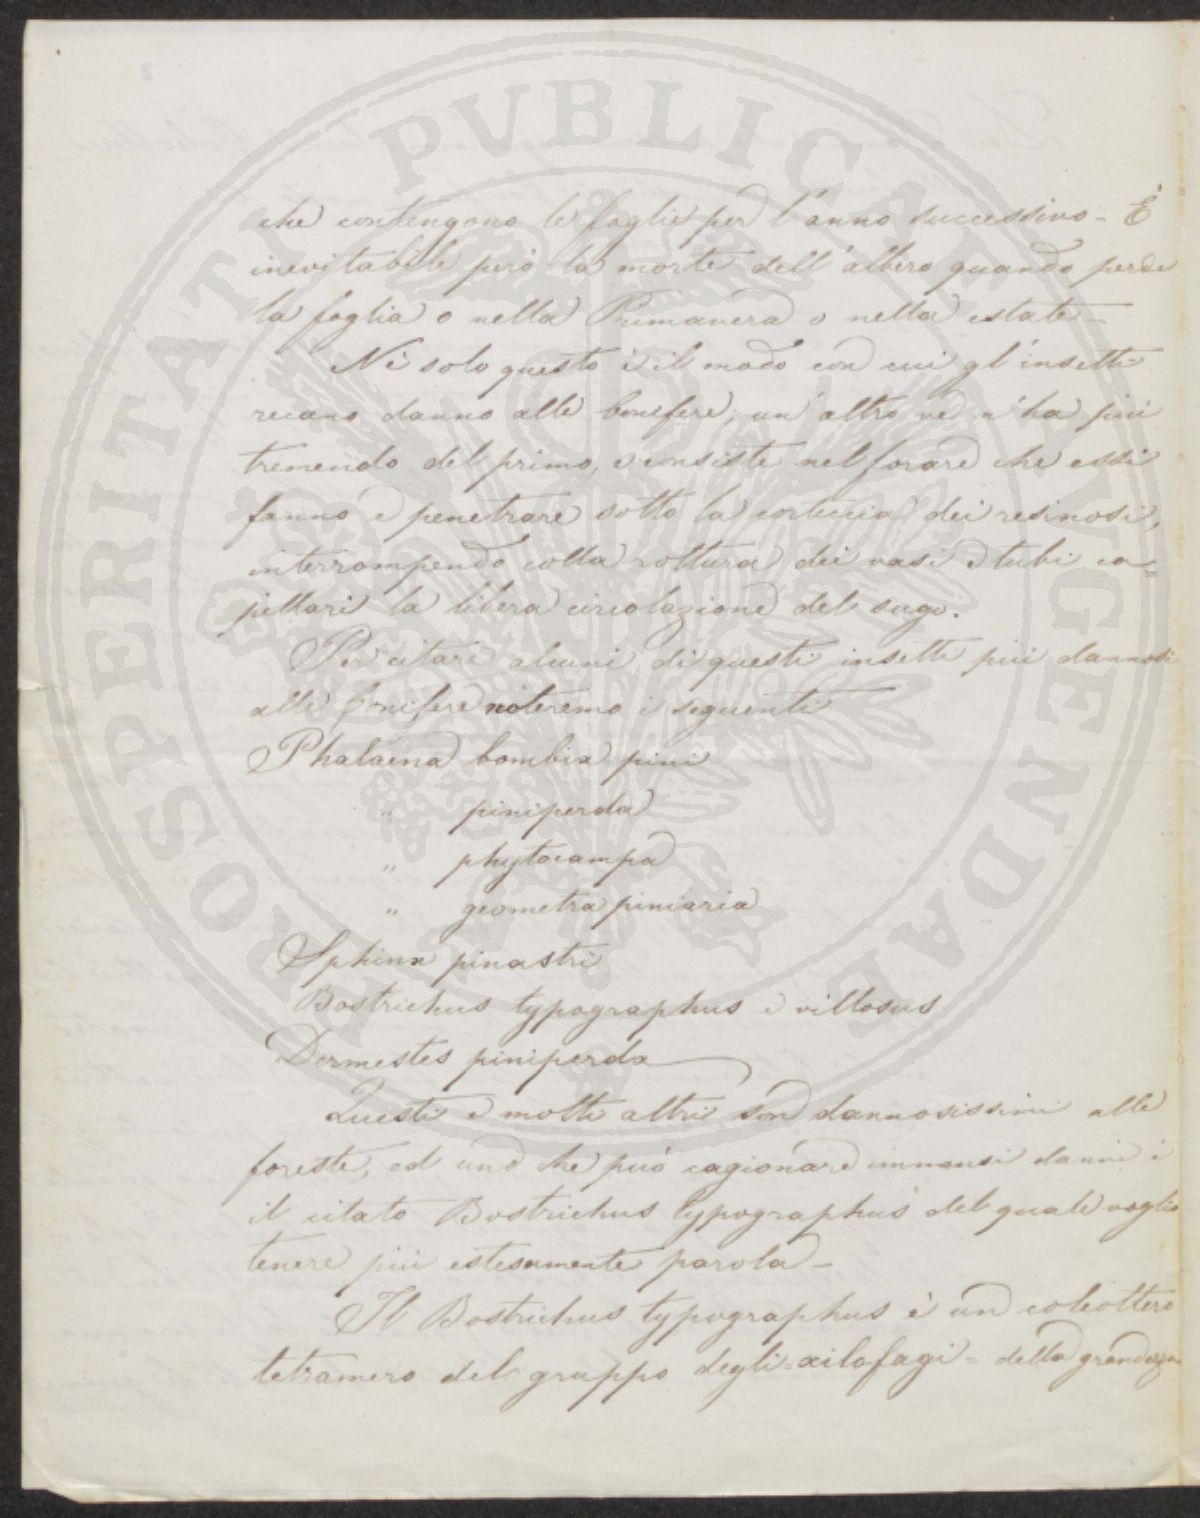 che contengono le foglie per l'anno successivo - È
inevitabile però la morte dell'albero quando perde
la foglia o nella Primavera o nella estate -
Nè solo questo è il modo con cui gl'insetti
recano danno alle conifere, un'altro ve n'ha più
tremendo del primo, e consiste nel forare che essi
fanno e penetrare sotto la corteccia dei resinosi,
interrompendo colla rottura dei vasi e tubi ca=
pillari la libera circolazione del sugo.
Per citare alcuni di questi insetti più dannosi
alle Conifere noteremo i seguenti
Phalaena bombix pini
" piniperda
" phytocampa
" geometra piniaria
Sphinx pinastri
Bostrichus typographus e villosus
Dermestes piniperda
Questi e molti altri son dannosissimi alle
foreste, ed uno che può cagionare immensi danni è
il citato Bostrichus typographus del quale voglio
tenere più estesamente parola -
Il Bostrichus typographus è un coleottero
tetramero del gruppo degli = xilofagi = della grandezza
PUBLICAE AUGENDAE PROSPERITATI